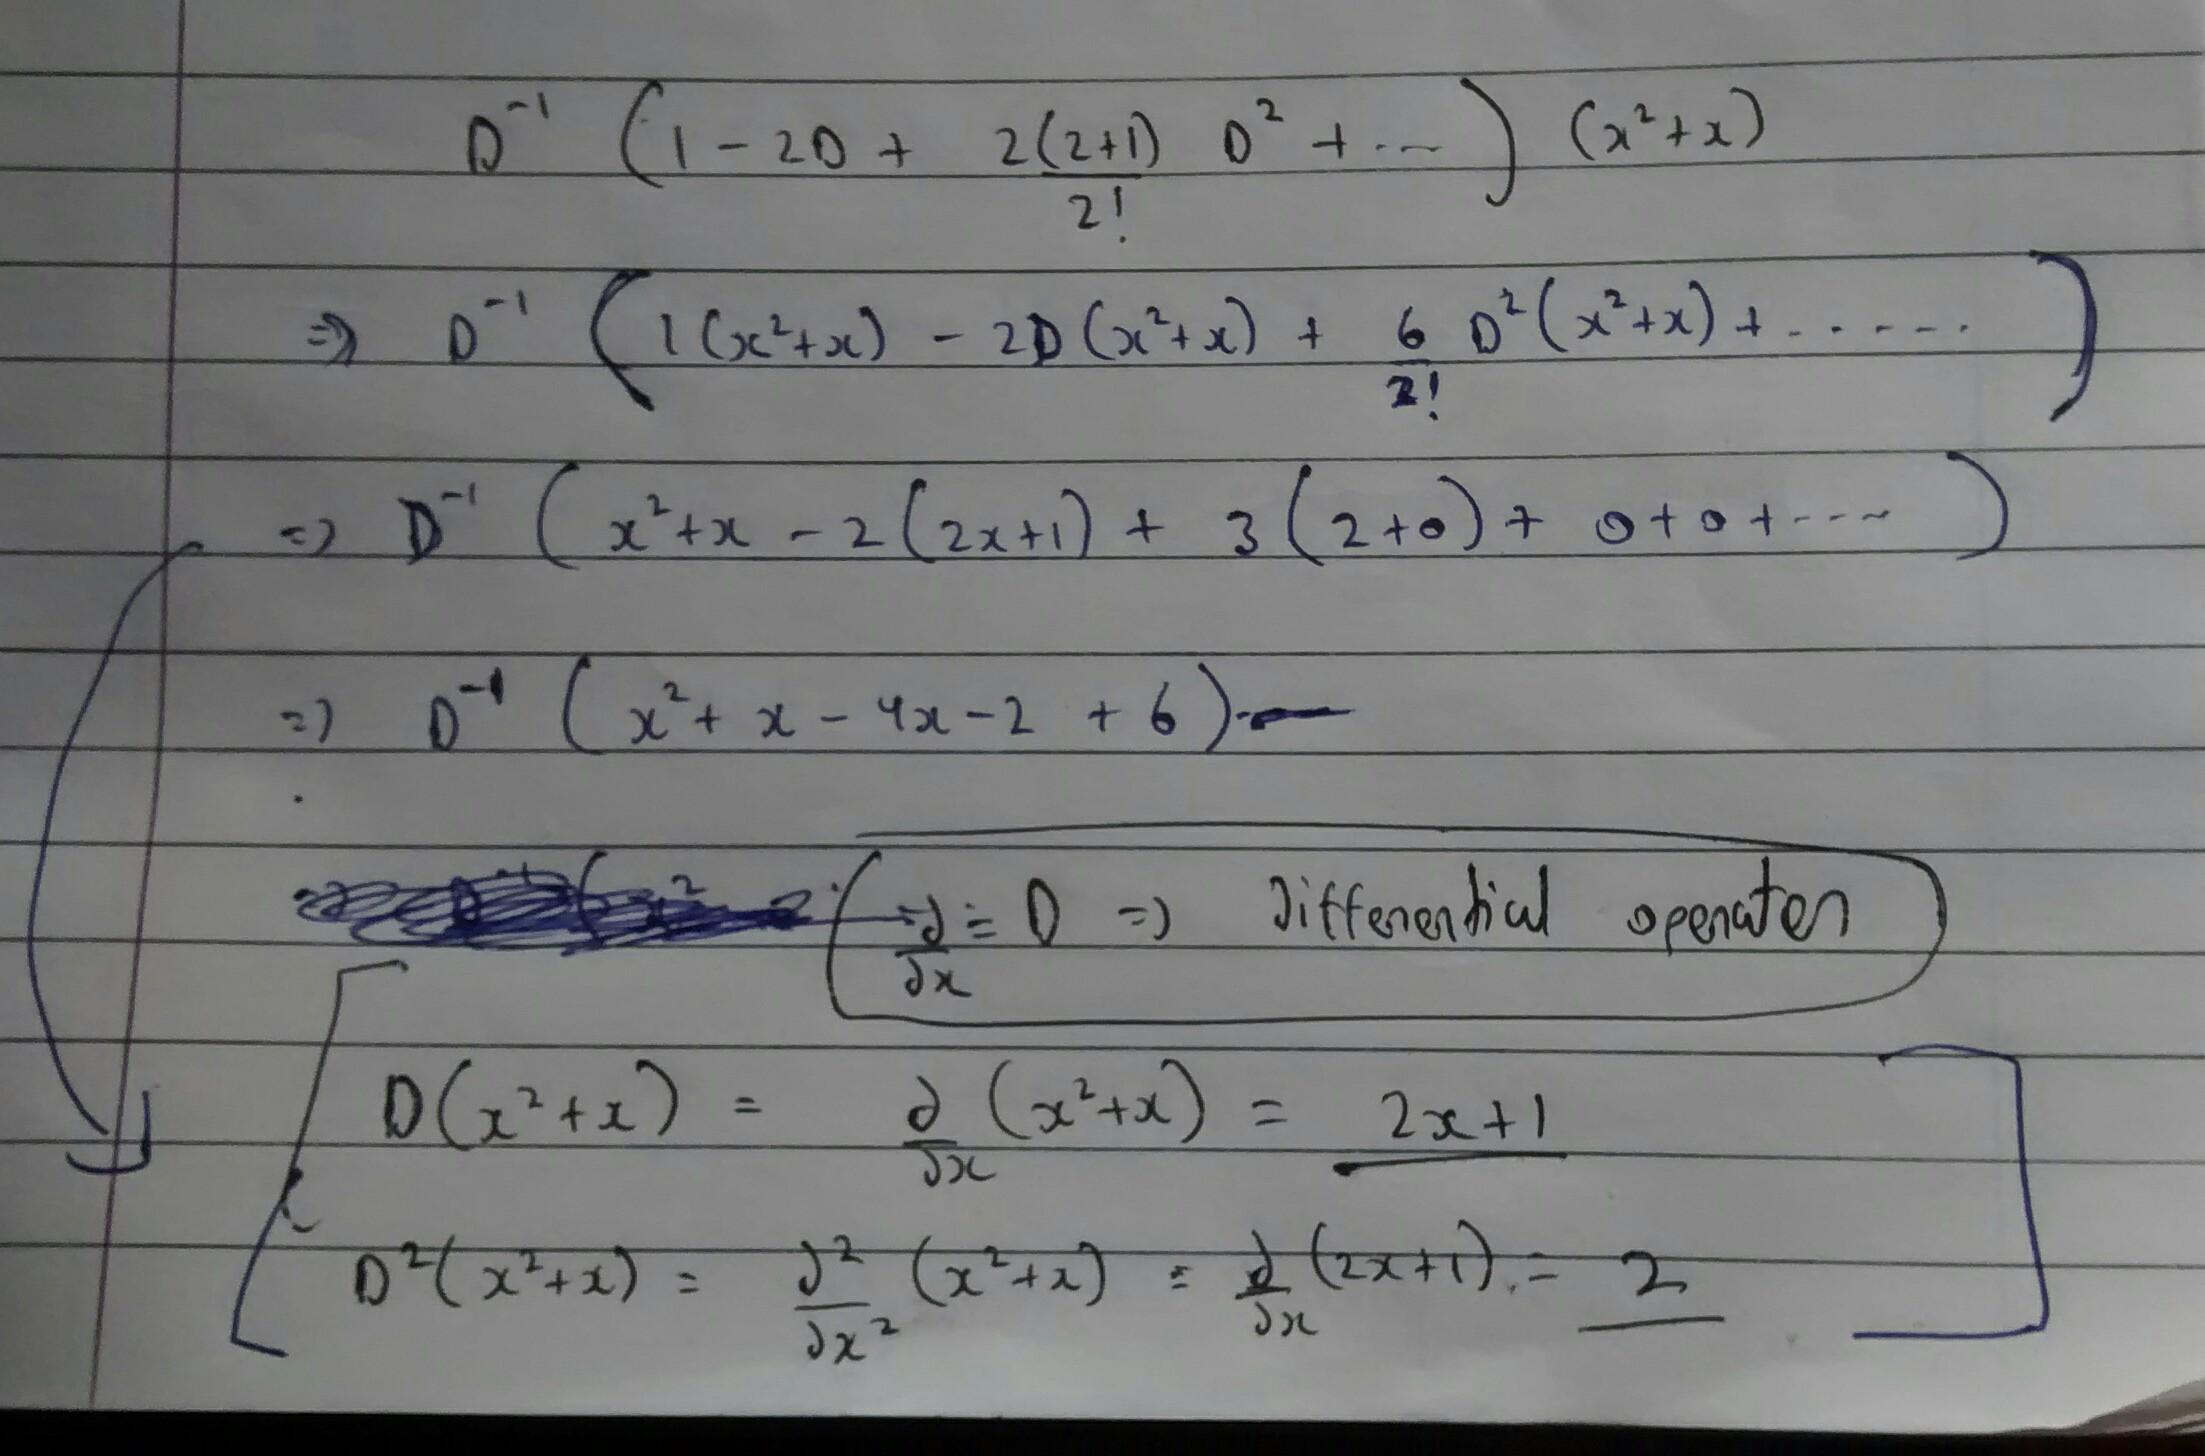 D⁻¹ (1 - 2D + 2(2+1)/2! D² + ...) (x²+x)
⇒ D⁻¹ (1(x²+x) - 2D(x²+x) + 6/2! D²(x²+x) + ......)
⇒ D⁻¹ (x²+x - 2(2x+1) + 3(2+0) + 0+0+....)
⇒ D⁻¹ (x²+x - 4x - 2 + 6)
∂/∂x = D ⇒ Differential operator
D(x²+x) = ∂/∂x (x²+x) = 2x+1
D²(x²+x) = ∂²/∂x² (x²+x) = ∂/∂x (2x+1) = 2